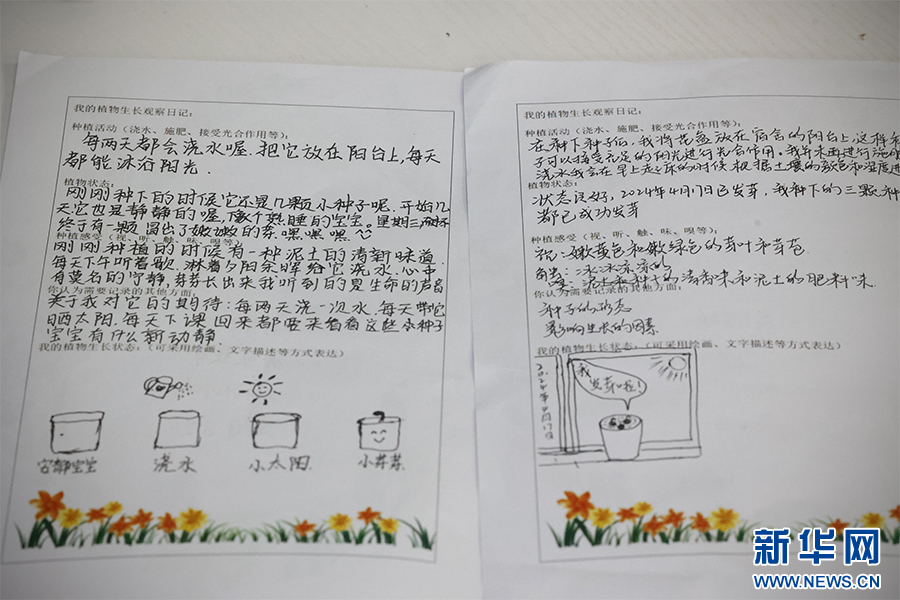 我的植物生长观察日记：
种植活动（浇水、施肥、接受光合作用等）：
每两天都会浇水喔.把它放在阳台上,每天
都能沐浴阳光.
植物状态：
刚刚种下的时候它还是几颗小种子呢,开始几
天它也是静静的喔,像个熟睡的宝宝,星期三
终于有一颗冒出了嫩嫩的芽嘿嘿嘿^^
种植感受（视、听、触、味、嗅等）：
刚刚种植的时候有一种泥土的清新味道.
每天下午听着歌,淋着夕阳余晖给它浇水.心中
有莫名的宁静,芽芽长出来我听到的是生命的声音
你认为需要记录的其他方面：
关于我对它的期待：每两天浇一次水,每天带它
晒太阳.每天下课回来都要来看看这些小种子
宝宝有什么新动静
我的植物生长状态：（可采用绘画、文字描述等方式表达）
安静宝宝
浇水
小太阳
小芽芽
我的植物生长观察日记：
种植活动（浇水、施肥、接受光合作用等）：
在种下种子后,我将花盆放在宿舍的阳台上,这样
子可以接受充足的阳光进行光合作用。我并未进行施肥
浇水我会在早上起床的时候根据土壤的颜色和湿度进
植物状态：
状态良好,2024年4月17日已发芽,我种下的三颗种
都已成功发芽
种植感受（视、听、触、味、嗅等）：
视：嫩黄色和嫩绿色的芽叶和芽苞
触：冰冰凉凉的
清香味和泥土的肥料味
你认为需要记录的其他方面：
种子的形态
影响生长的因素
我的植物生长状态：（可采用绘画、文字描述等方式表达）
2024年4月17日
我
发芽啦!
新华网
WWW.NEWS.CN